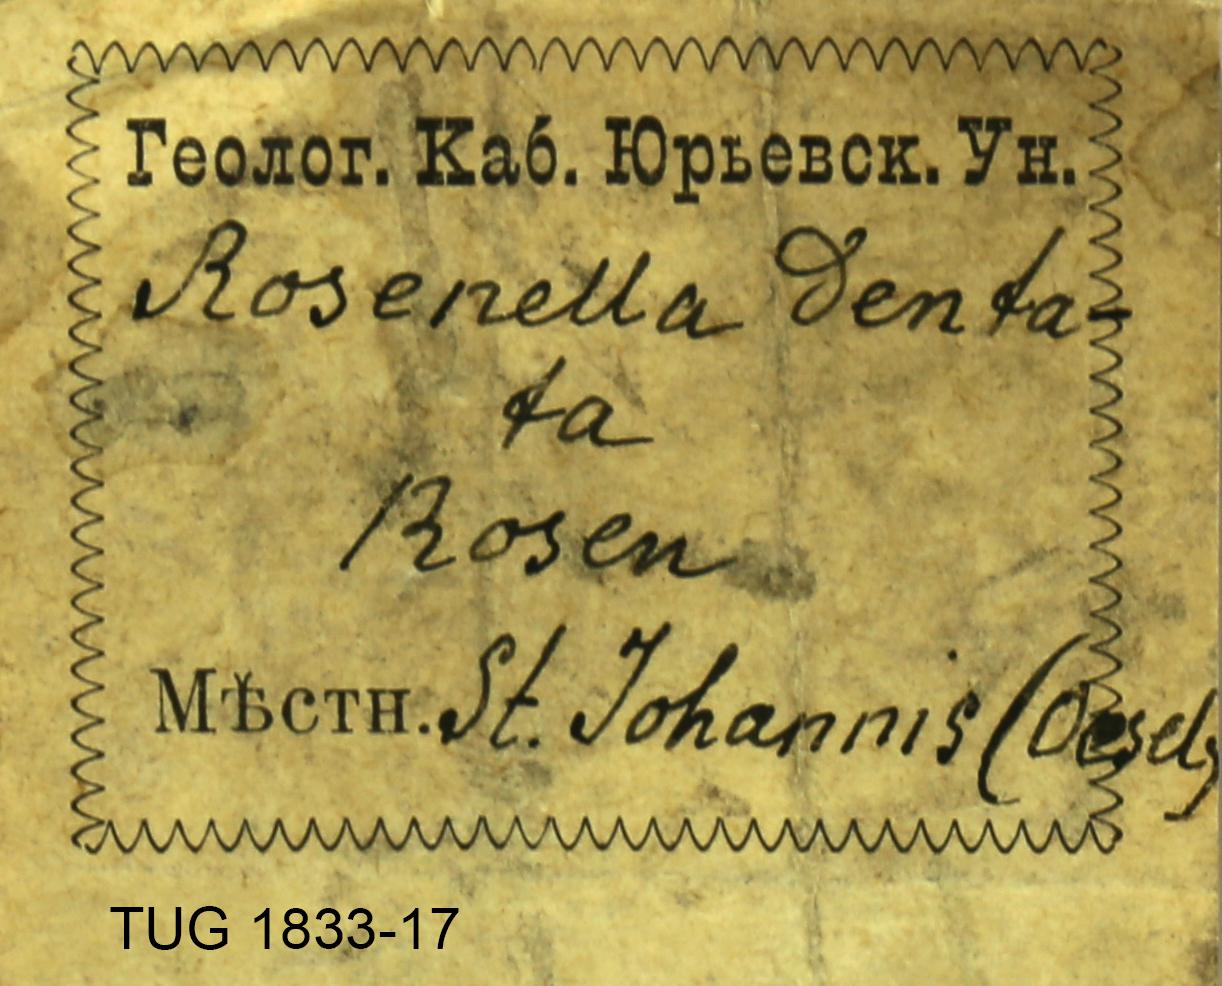 Геолог. Каб. Юрьевск. Ун.
Rosenella Denta-
ta
Rosen
Мѣстн. St. Johannis (Oesel)
TUG 1833-17